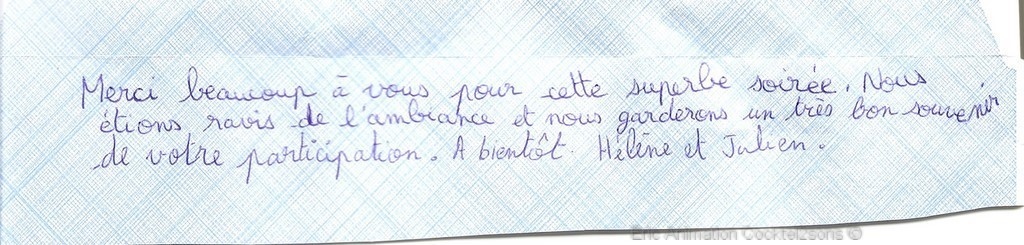 Merci beaucoup à vous pour cette superbe soirée. Nous
étions ravis de l'ambiance et nous garderons un très bon souvenir
de votre participation. A bientôt. Hélène et Julien.
Eric Animation Cocktel2sons ©